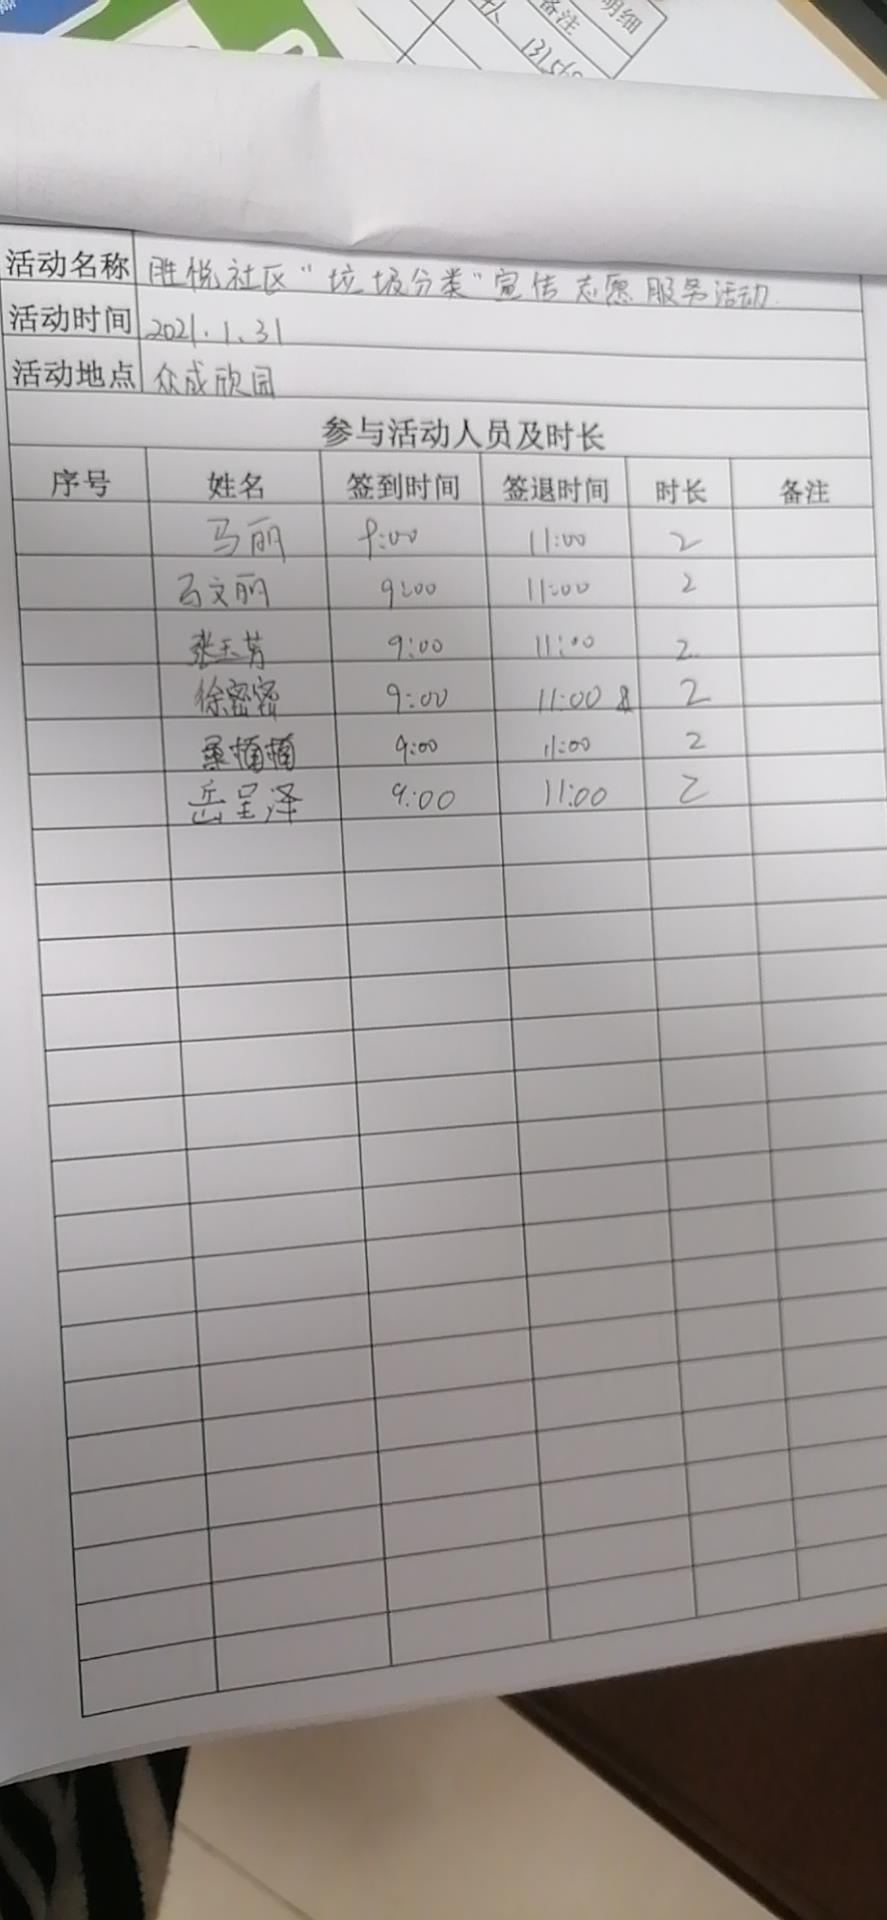 明细
备注
活动名称 胜悦社区“垃圾分类”宣传志愿服务活动
活动时间 2021.1.31
活动地点 众成颀园
参与活动人员及时长
序号 姓名 签到时间 签退时间 时长 备注
马丽 9:00 11:00 2
马文丽 9:00 11:00 2
张玉芳 9:00 11:00 2
徐密密 9:00 11:00 2
桑楠楠 9:00 11:00 2
岳呈泽 9:00 11:00 2